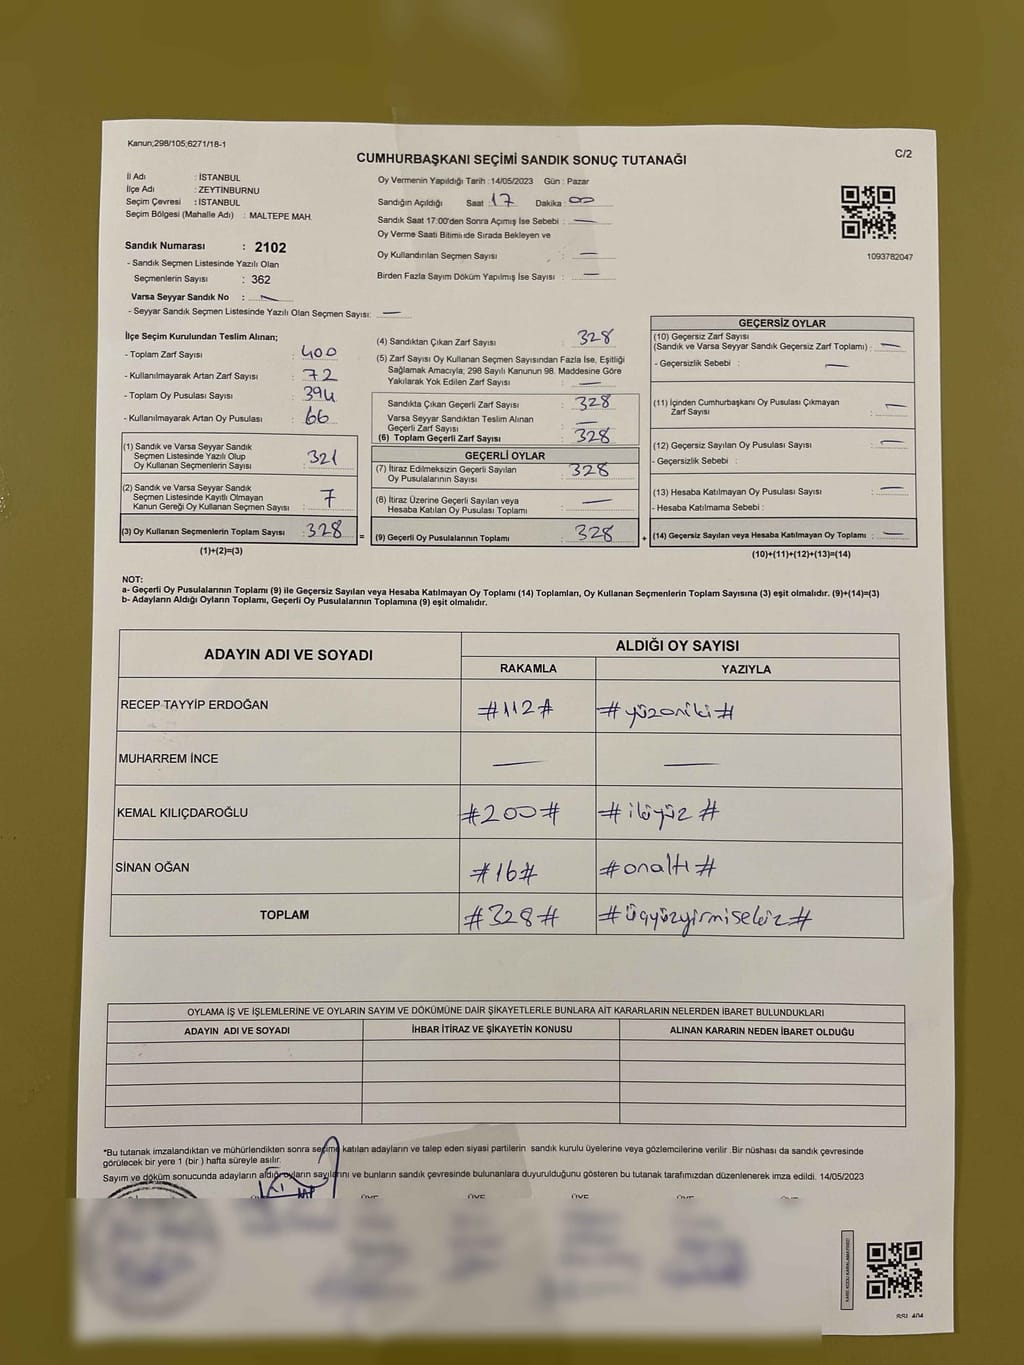 Kanun;298/105;6271/18-1
C/2
CUMHURBAŞKANI SEÇİMİ SANDIK SONUÇ TUTANAĞI
İl Adı : İSTANBUL
İlçe Adı : ZEYTİNBURNU
Seçim Çevresi : İSTANBUL
Seçim Bölgesi (Mahalle Adı) : MALTEPE MAH.
Sandık Numarası : 2102
- Sandık Seçmen Listesinde Yazılı Olan
Seçmenlerin Sayısı : 362
Varsa Seyyar Sandık No : —
- Seyyar Sandık Seçmen Listesinde Yazılı Olan Seçmen Sayısı: —
Oy Vermenin Yapıldığı Tarih : 14/05/2023 Gün : Pazar
Sandığın Açıldığı Saat : 17 Dakika : 00
Sandık Saat 17:00'den Sonra Açımış İse Sebebi : —
Oy Verme Saati Bitimiıde Sırada Bekleyen ve
Oy Kullandırılan Seçmen Sayısı : —
Birden Fazla Sayım Döküm Yapılmış İse Sayısı : —
1093782047
İlçe Seçim Kurulundan Teslim Alınan;
- Toplam Zarf Sayısı : 400
- Kullanılmayarak Artan Zarf Sayısı : 72
- Toplam Oy Pusulası Sayısı : 394
- Kullanılmayarak Artan Oy Pusulası : 66
(1) Sandık ve Varsa Seyyar Sandık
Seçmen Listesinde Yazılı Olup
Oy Kullanan Seçmenlerin Sayısı : 321
(2) Sandık ve Varsa Seyyar Sandık
Seçmen Listesinde Kayıtlı Olmayan
Kanun Gereği Oy Kullanan Seçmen Sayısı : 7
(3) Oy Kullanan Seçmenlerin Toplam Sayısı : 328
(1)+(2)=(3)
=
(4) Sandıktan Çıkan Zarf Sayısı : 328
(5) Zarf Sayısı Oy Kullanan Seçmen Sayısından Fazla İse, Eşitliği
Sağlamak Amacıyla; 298 Sayılı Kanunun 98. Maddesine Göre
Yakılarak Yok Edilen Zarf Sayısı : —
Sandıkta Çıkan Geçerli Zarf Sayısı : 328
Varsa Seyyar Sandıktan Teslim Alınan
Geçerli Zarf Sayısı : —
(6) Toplam Geçerli Zarf Sayısı : 328
GEÇERLİ OYLAR
(7) İtiraz Edilmeksizin Geçerli Sayılan
Oy Pusulalarının Sayısı : 328
(8) İtiraz Üzerine Geçerli Sayılan veya
Hesaba Katılan Oy Pusulası Toplamı : —
(9) Geçerli Oy Pusulalarının Toplamı : 328
+
GEÇERSİZ OYLAR
(10) Geçersiz Zarf Sayısı
(Sandık ve Varsa Seyyar Sandık Geçersiz Zarf Toplamı) : —
- Geçersizlik Sebebi : —
(11) İçinden Cumhurbaşkanı Oy Pusulası Çıkmayan
Zarf Sayısı : —
(12) Geçersiz Sayılan Oy Pusulası Sayısı : —
- Geçersizlik Sebebi :
(13) Hesaba Katılmayan Oy Pusulası Sayısı : —
- Hesaba Katılmama Sebebi :
(14) Geçersiz Sayılan veya Hesaba Katılmayan Oy Toplamı : —
(10)+(11)+(12)+(13)=(14)
NOT:
a- Geçerli Oy Pusulalarının Toplamı (9) ile Geçersiz Sayılan veya Hesaba Katılmayan Oy Toplamı (14) Toplamları, Oy Kullanan Seçmenlerin Toplam Sayısına (3) eşit olmalıdır. (9)+(14)=(3)
b- Adayların Aldığı Oyların Toplamı, Geçerli Oy Pusulalarının Toplamına (9) eşit olmalıdır.
ADAYIN ADI VE SOYADI
ALDIĞI OY SAYISI
RAKAMLA YAZIYLA
RECEP TAYYİP ERDOĞAN #112# #yüzoniki#
MUHARREM İNCE — —
KEMAL KILIÇDAROĞLU #200# #ikiyüz#
SİNAN OĞAN #16# #onaltı#
TOPLAM #328# #üçyüzyirmisekiz#
OYLAMA İŞ VE İŞLEMLERİNE VE OYLARIN SAYIM VE DÖKÜMÜNE DAİR ŞİKAYETLERLE BUNLARA AİT KARARLARIN NELERDEN İBARET BULUNDUKLARI
ADAYIN ADI VE SOYADI İHBAR İTİRAZ VE ŞİKAYETİN KONUSU ALINAN KARARIN NEDEN İBARET OLDUĞU
*Bu tutanak imzalandıktan ve mühürlendikten sonra seçime katılan adayların ve talep eden siyasi partilerin sandık kurulu üyelerine veya gözlemcilerine verilir .Bir nüshası da sandık çevresinde
görülecek bir yere 1 (bir ) hafta süreyle asılır.
Sayım ve döküm sonucunda adayların aldığı oyların sayılarını ve bunların sandık çevresinde bulunanlara duyurulduğunu gösteren bu tutanak tarafımızdan düzenlenerek imza edildi. 14/05/2023